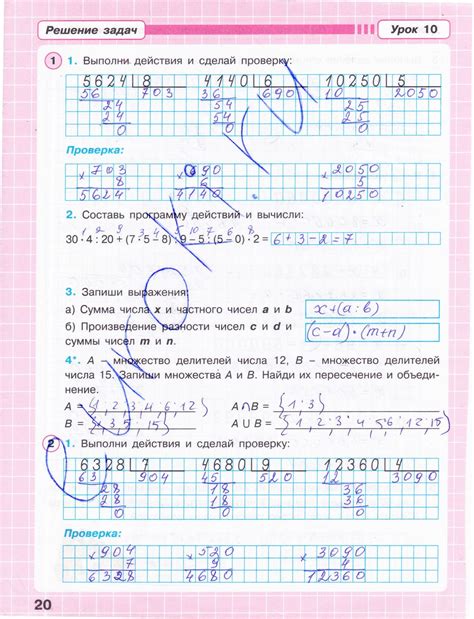 Решение задач
Урок 10
1 1. Выполни действия и сделай проверку:
5624 8 4140 6 10250 5
56 703 36 690 10 2050
24 54 25
24 54 25
0 0 0
Проверка:
703 690 2050
× 8 × 6 × 5
5624 4140 10250
2. Составь программу действий и вычисли:
30 · 4 : 20 + (7 · 5 – 8) : 9 – 5 : (5 – 0) · 2 = 6 + 3 – 2 = 7
3. Запиши выражения:
а) Сумма числа x и частного чисел a и b
x+(a:b)
б) Произведение разности чисел c и d и
суммы чисел m и n.
(c–d)·(m+n)
4*. A – множество делителей числа 12, B – множество делителей
числа 15. Запиши множества A и B. Найди их пересечение и объеди-
нение.
A = {1, 2, 3, 4, 6, 12} A∩B = {1; 3}
B = {1, 3, 5, 15} A∪B = {1, 2; 3; 4; 5; 6; 12; 15}
2 1. Выполни действия и сделай проверку:
6328 7 4680 9 12360 4
63 904 45 520 12 3090
28 18 36
28 18 36
0 0 0
Проверка:
904 520 3090
× 7 × 9 × 4
6328 4680 12360
20